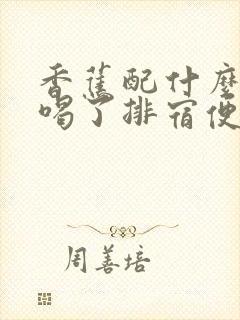 香蕉配什麼
喝了排宿便
周善培